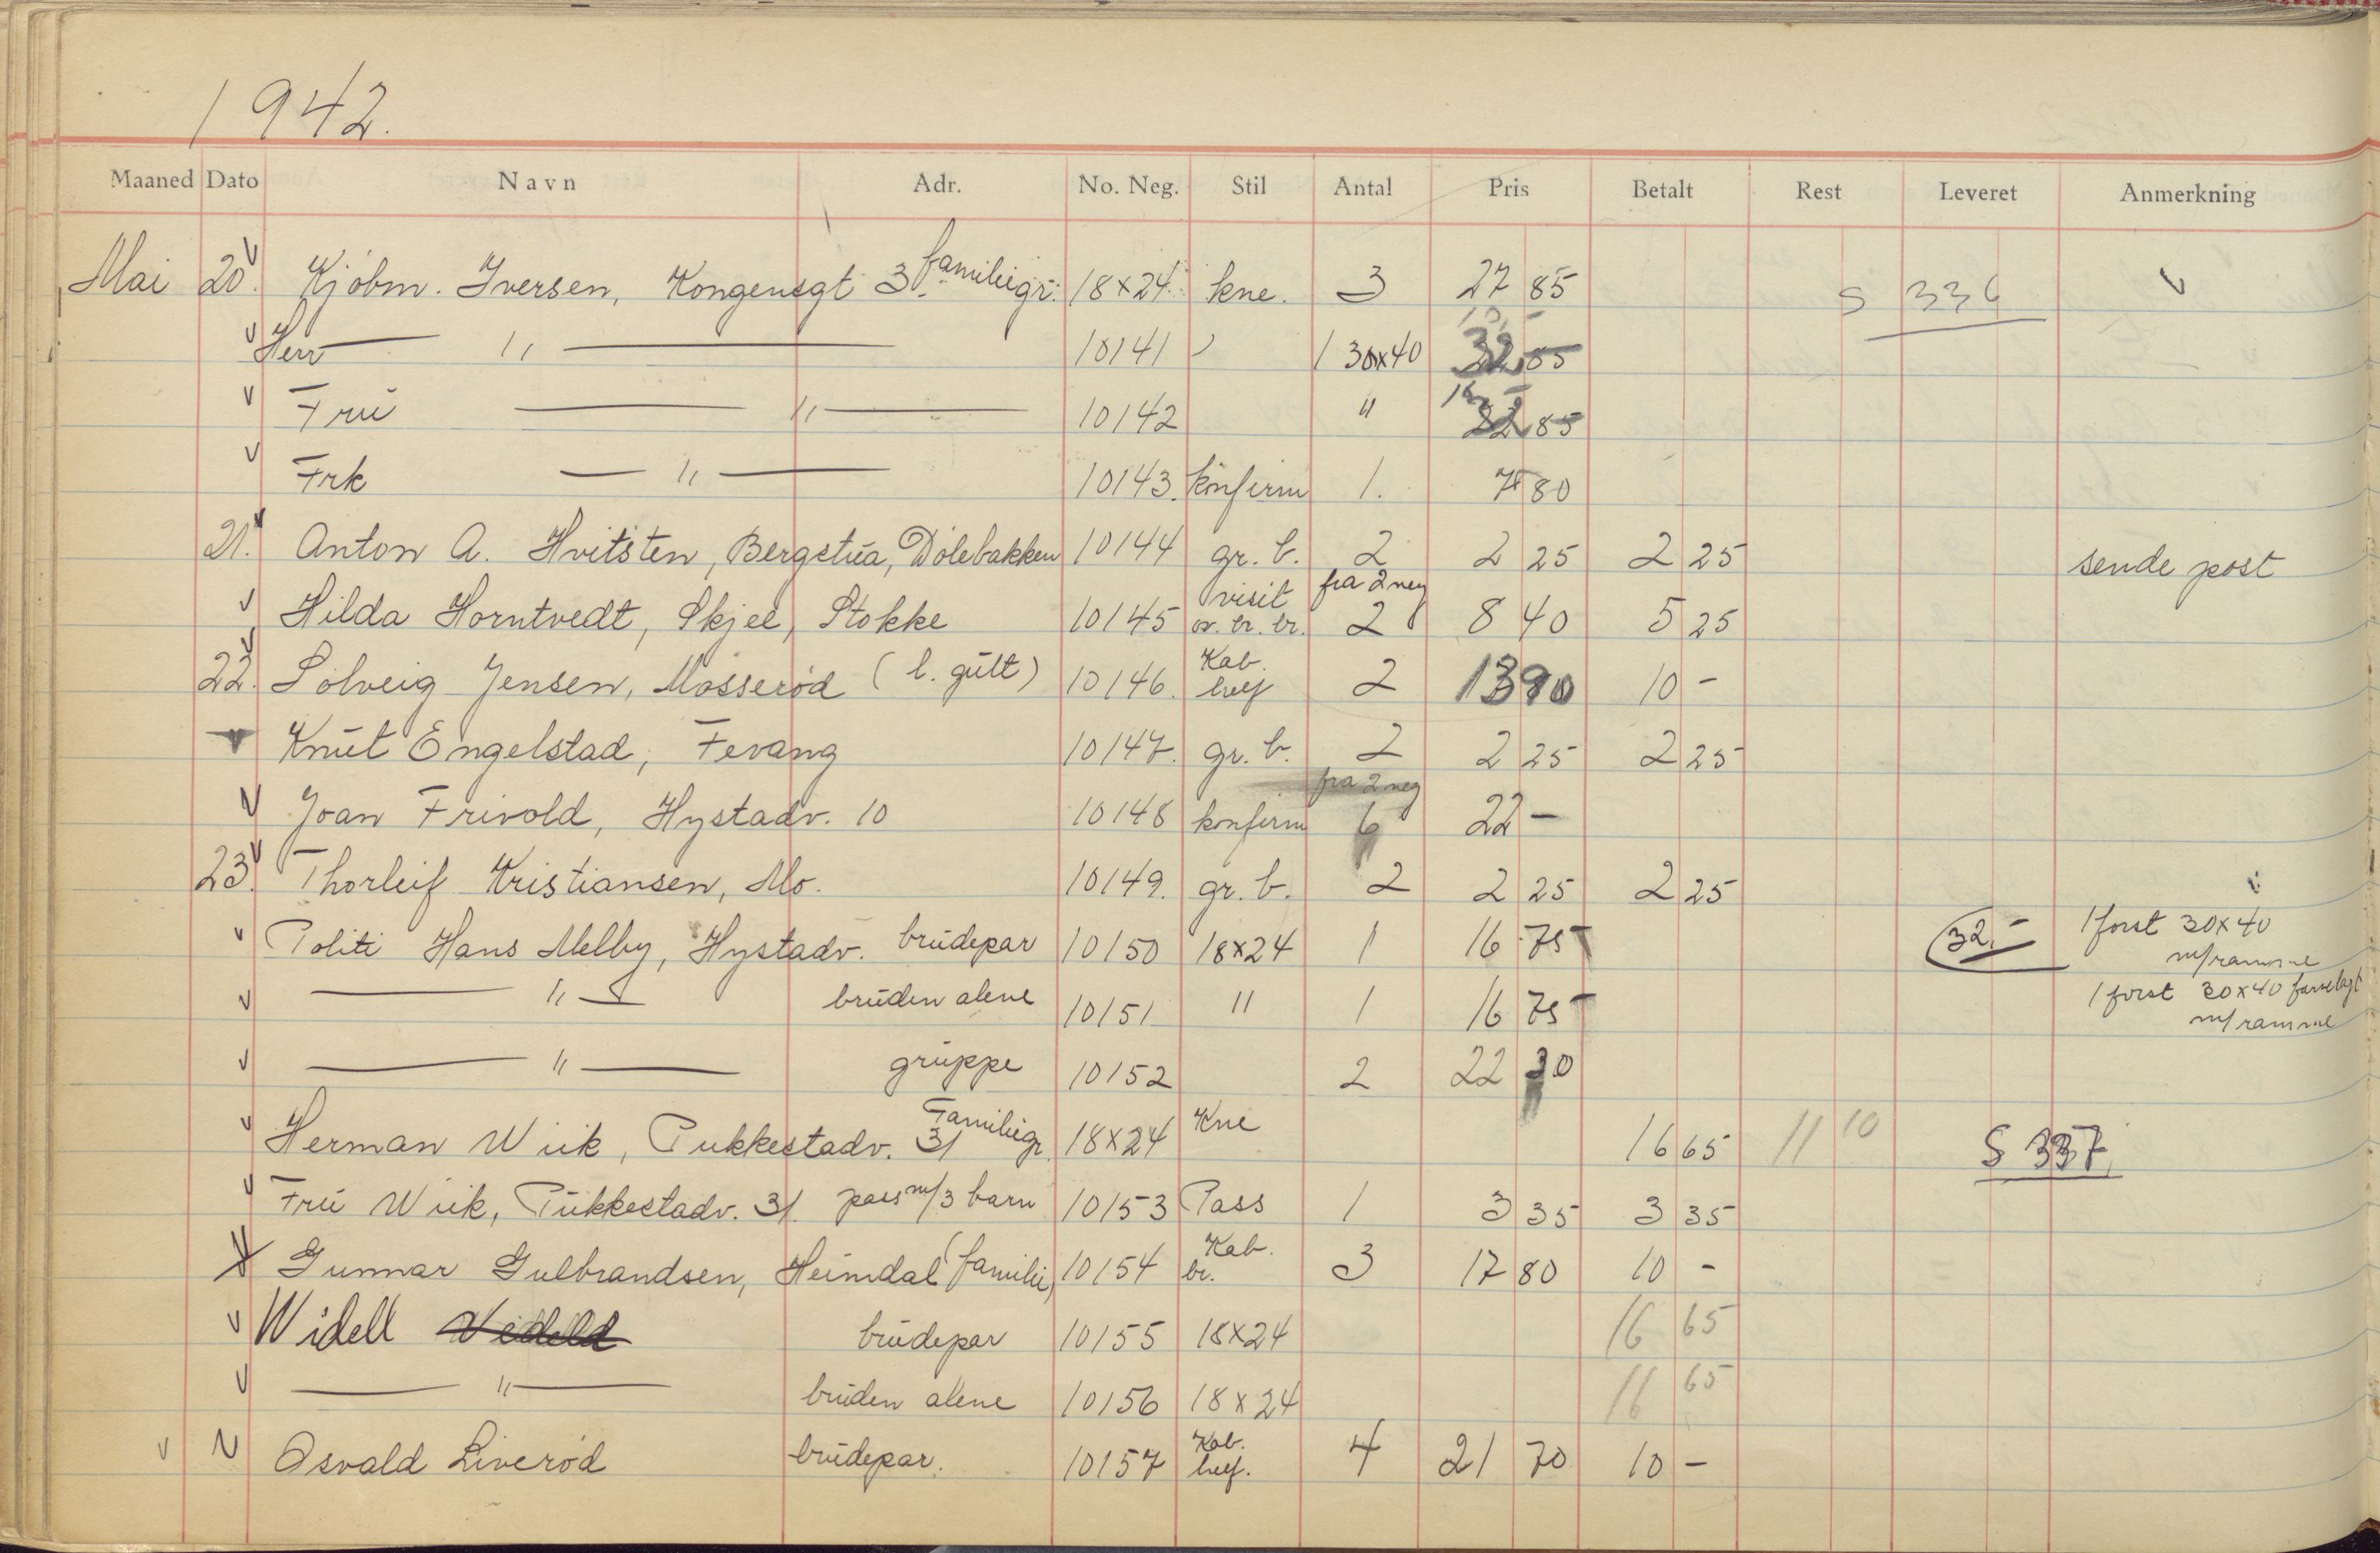 1942.
Maaned Dato Navn Adr. No. Neg. Stil Antal Pris Betalt Rest Leveret Anmerkning
Mai 20. Kjøbm. Iversen, Kongensgt 3. familiegr. 18x24 kne. 3 27 85 S 336
Herr — " — 10141 1 30x40
Frü — " — 10142 "
Frk — " — 10143. konfirm 1. 7 80
21. Anton A. Hvitsten, Bergstüa, Dølebakken 10144 gr. b. 2 2 25 2 25 sende post
Hilda Horntvedt, Skjee, Stokke 10145 visit br. br. fra 2 neg 2 8 40 5 25
22. Solveig Jensen, Mosserød (l. gült) 10146. Kab. 2 13 90 10 -
Knüt Engelstad, Fevang 10147. gr. b. 2 2 25 2 25
Joan Frivold, Hystadv. 10 10148 konfirm fra 2 neg 6 22 -
23. Thorleif Kristiansen, Mo. 10149. gr. b. 2 2 25 2 25
Politi Hans Melby, Hystadv. brüdepar 10150 18x24 1 16 75 32.- 1 forst 30x40 m/ramme
— " — brüden alene 10151 " 1 16 75 1 forst 30x40 farvelagt m/ramme
— " — grüppe 10152 2 22 30
Herman Wiik, Pukkestadv. 31 Familiegr. 18x24 Kne 16 65 11 10 S 337
Frü Wiik, Pükkestadv. 31. pass m/3 barn 10153 Pass 1 3 35 3 35
Gunnar Gulbrandsen, Heimdal (familie) 10154 Kab. br. 3 17 80 10 -
Widell brüdepar 10155 18x24 16 65
— " — brüden alene 10156 18x24 16 65
Osvald Liverød brüdepar. 10157 Kab. 4 21 70 10 -